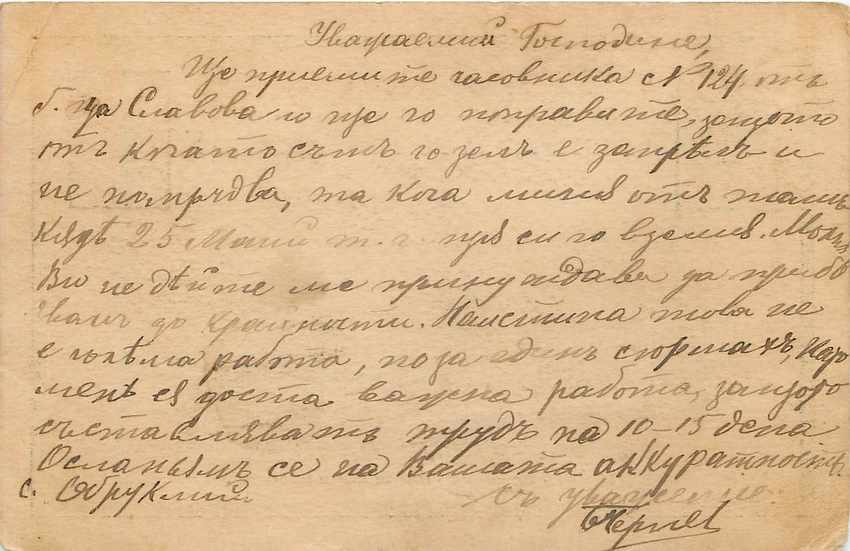 Уважаемий Господине,
Ще приемите часовника № 124 отъ
б. ца Славова и ще го поправите, защото
отъ когато съмъ го зелъ е запрѣлъ и
не помръдва, та кога мина отъ тамъ
кядѣ 25 Маий т. г. щя си го вземя. Моля
Ви не дѣйте ме принуждава да прибѣ
гвамъ до крайности. Наистина това не
е голѣма работа, но за единъ сюрмахъ, като
мень ся доста важна работа, защото
съставляватъ трудъ на 10–15 дена
Осланямъ се на Вашата аккуратность.
с. Ябруклий съ уважение: